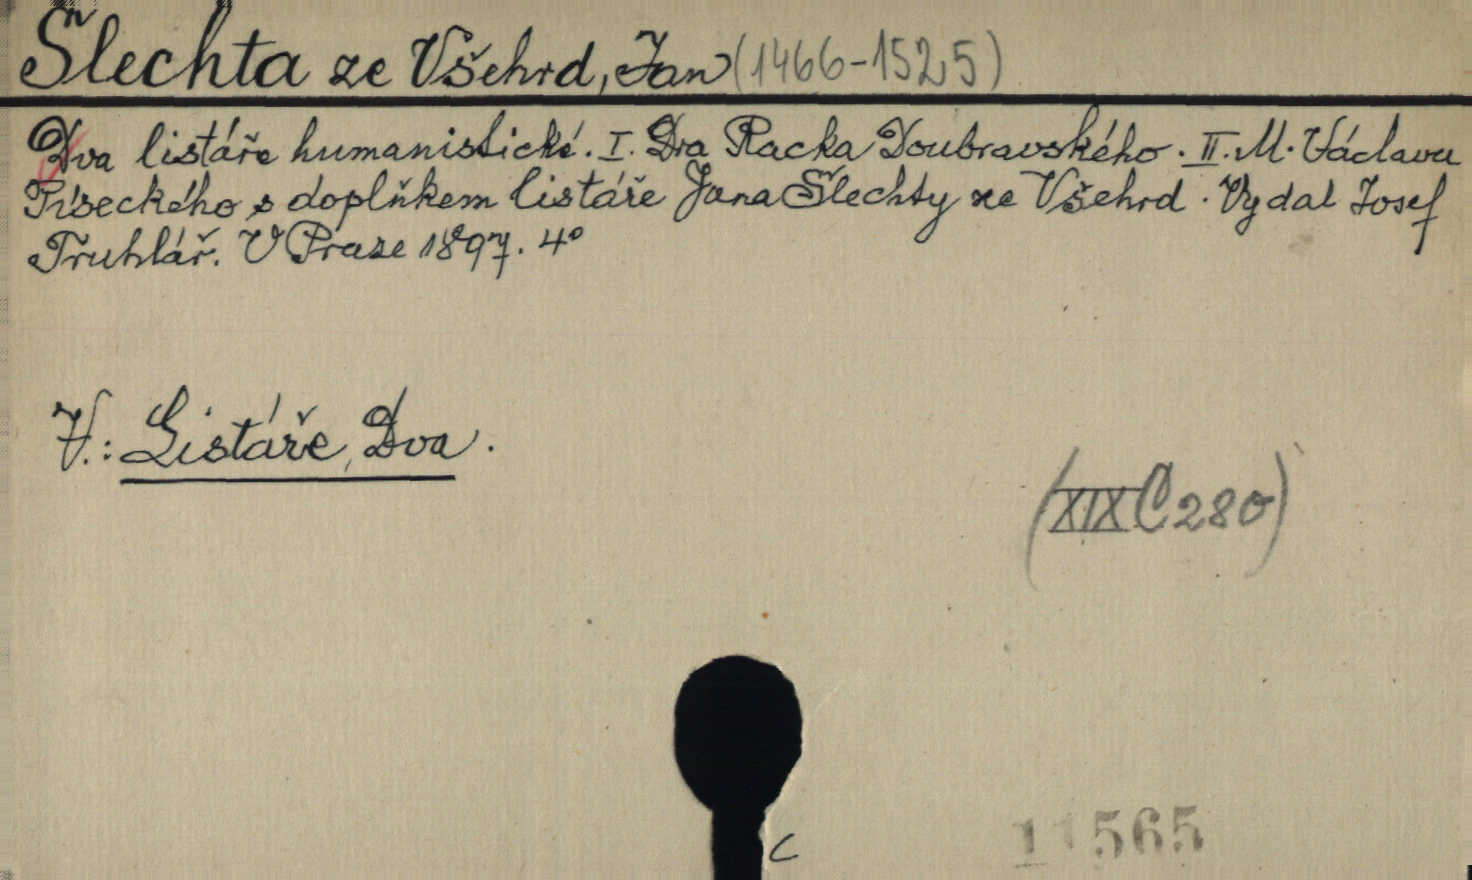 Šlechta ze Všehrd, Jan (1466-1525)
Dva listáře humanistické. I. Dra Racka Doubravského. II. M. Václava
Píseckého s doplňkem listáře Jana Šlechty ze Všehrd. Vydal Josef
Truhlář. V Praze 1897. 4°
V.: Listáře, Dva.
(XIX C 280)
C
11565